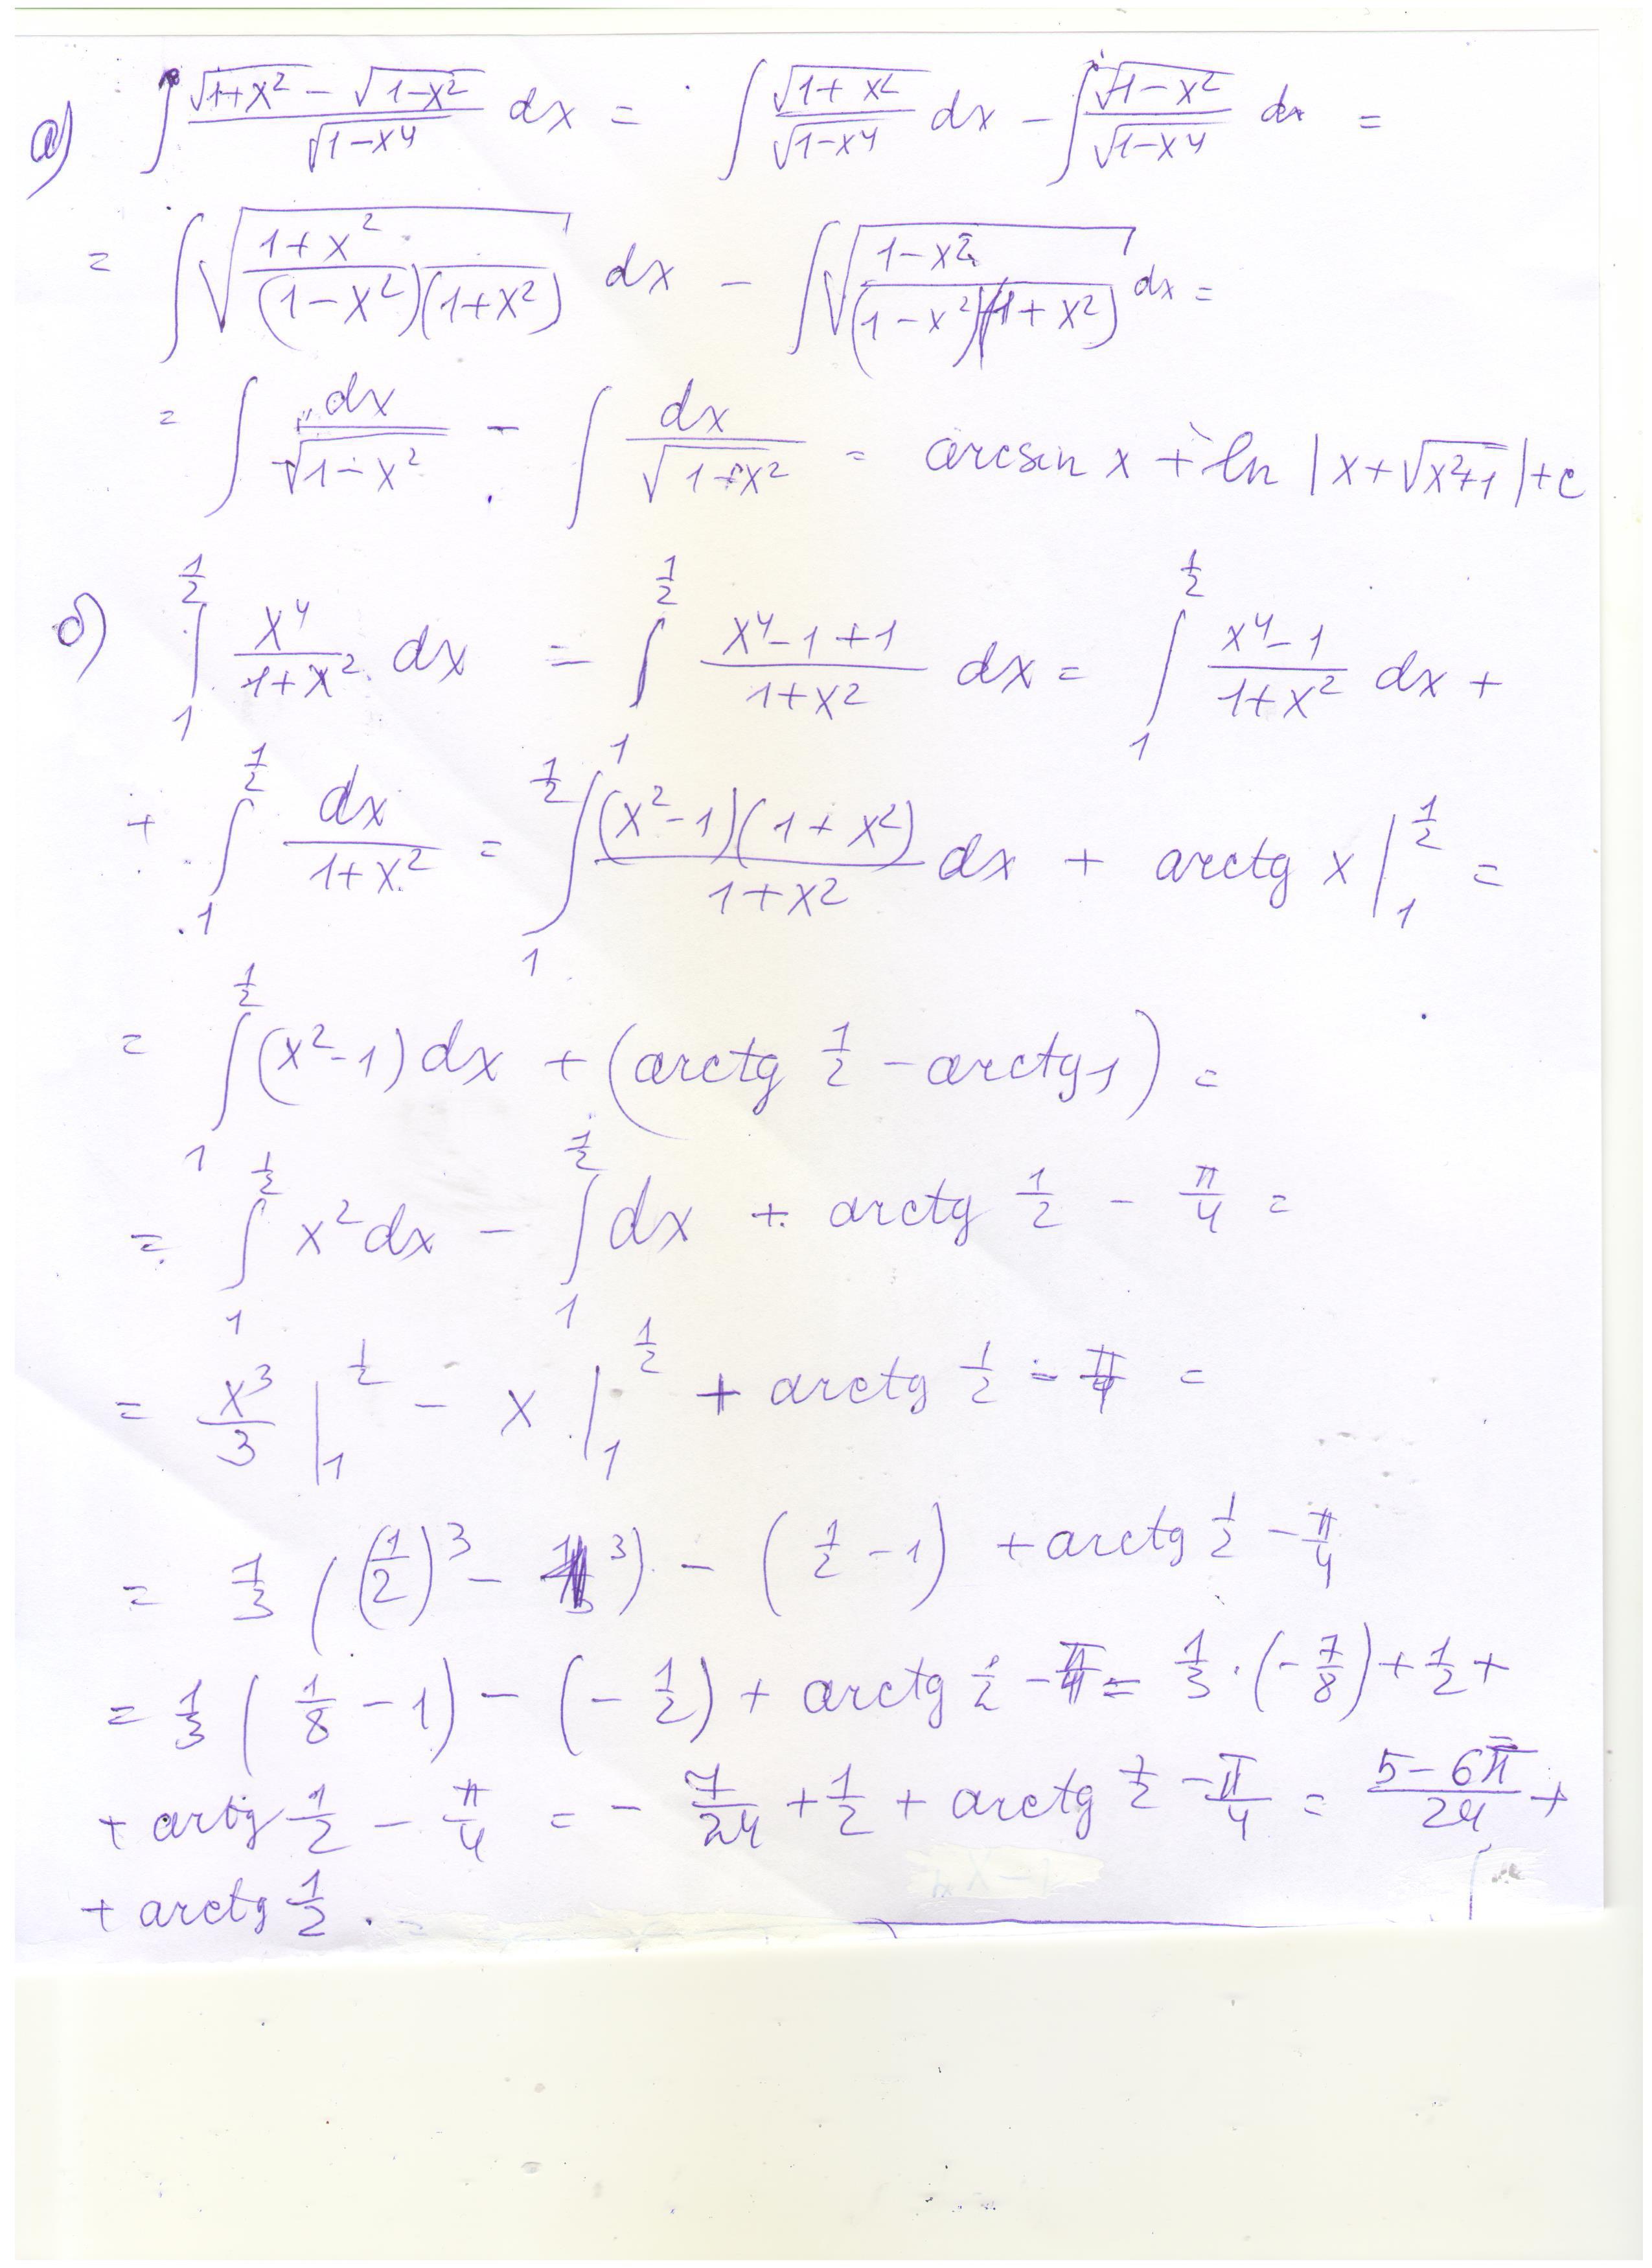 а) ∫ (√(1+x²) − √(1−x²))/√(1−x⁴) dx = ∫ √(1+x²)/√(1−x⁴) dx − ∫ √(1−x²)/√(1−x⁴) dx =
= ∫ √((1+x²)/((1−x²)(1+x²))) dx − ∫ √((1−x²)/((1−x²)(1+x²))) dx =
= ∫ dx/√(1−x²) − ∫ dx/√(1+x²) = arcsin x + ln |x+√(x²+1)|+c
б) ∫₁^(1/2) x⁴/(1+x²) dx = ∫₁^(1/2) (x⁴−1+1)/(1+x²) dx = ∫₁^(1/2) (x⁴−1)/(1+x²) dx +
+ ∫₁^(1/2) dx/(1+x²) = ∫₁^(1/2) (x²−1)(1+x²)/(1+x²) dx + arctg x |₁^(1/2) =
= ∫₁^(1/2) (x²−1) dx + (arctg 1/2 − arctg 1) =
= ∫₁^(1/2) x² dx − ∫₁^(1/2) dx + arctg 1/2 − π/4 =
= x³/3 |₁^(1/2) − x |₁^(1/2) + arctg 1/2 − π/4 =
= 1/3 ((1/2)³ − 1³) − (1/2 − 1) + arctg 1/2 − π/4
= 1/3 (1/8 − 1) − (−1/2) + arctg 1/2 − π/4 = 1/3 · (−7/8) + 1/2 +
+ arctg 1/2 − π/4 = − 7/24 + 1/2 + arctg 1/2 − π/4 = (5−6π)/24 +
+ arctg 1/2 .